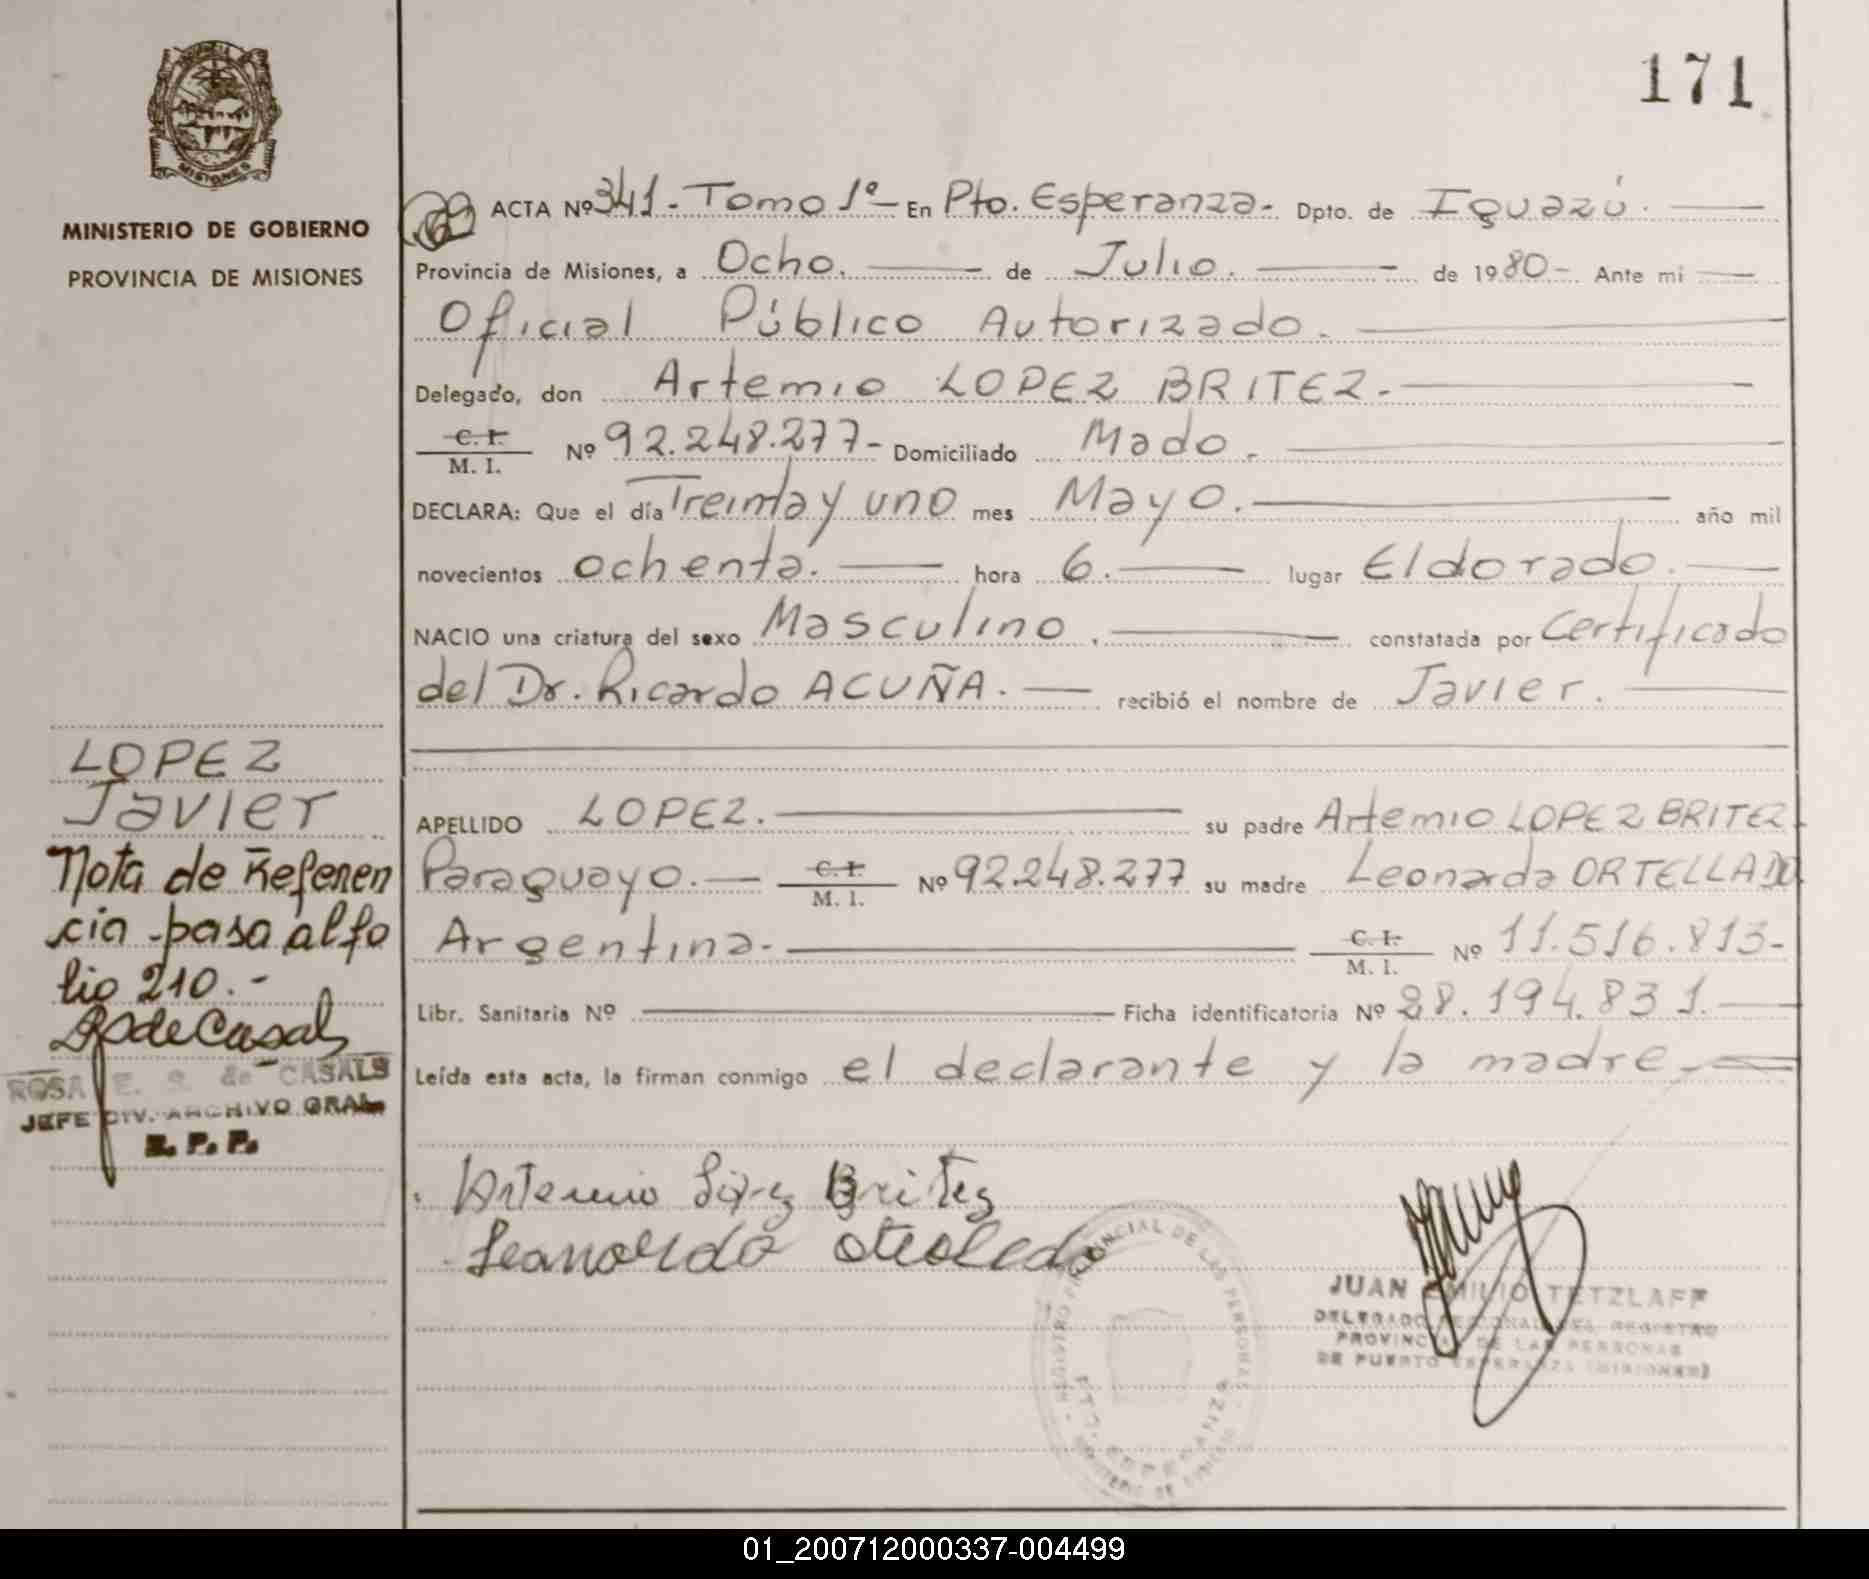 171
MISIONES
MINISTERIO DE GOBIERNO
PROVINCIA DE MISIONES
ACTA Nº 341.- Tomo 1º - En Pto. Esperanza- Dpto. de Iguazú.
Provincia de Misiones, a Ocho. de Julio. de 1980-. Ante mi
Oficial Público Autorizado.
Delegado, don Artemio LOPEZ BRITEZ.-
C. I.
M. I. Nº 92.248.277- Domiciliado Mado.
DECLARA: Que el día Treinta y uno mes Mayo. año mil
novecientos ochenta. hora 6. lugar Eldorado.
NACIO una criatura del sexo Masculino. constatada por Certificado
del Dr. Ricardo ACUÑA. recibió el nombre de Javier.
APELLIDO LOPEZ. su padre Artemio LOPEZ BRITEZ
Paraguayo. C. I.
M. I. Nº 92.248.277 su madre Leonarda ORTELLADO
Argentina- C. I.
M. I. Nº 11.516.813-
Libr. Sanitaria Nº Ficha identificatoria Nº 28.194.831.
Leída esta acta, la firman conmigo el declarante y la madre
Artemio López Britez
JUAN EMILIO TETZLAFF
DELEGADO REGIONAL DEL REGISTRO
PROVINCIAL DE LAS PERSONAS
DE PUERTO ESPERANZA (MISIONES)
REGISTRO PROVINCIAL DE LAS PERSONAS
PTO. ESPERANZA
LOPEZ
Javier
Nota de Referen
cia pasa al fo
lio 210.-
ROSA E. S. de CASALS
JEFE DIV. ARCHIVO GRAL.
R. P. P.
01_200712000337-004499